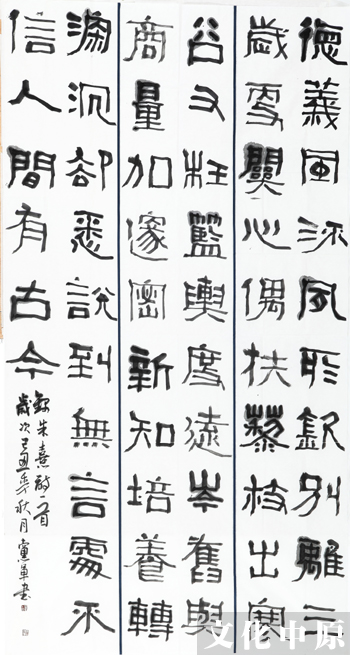 德義風流夙形欽別離二
歲更關心偶扶藜枝出寒
谷又枉籃輿度遠岑舊與
商量加邃密新知培養轉
深沉却悉說到無言處不
信人間有古今
錄朱熹詩一首
歲次己丑年秋月黨軍書
文化中原